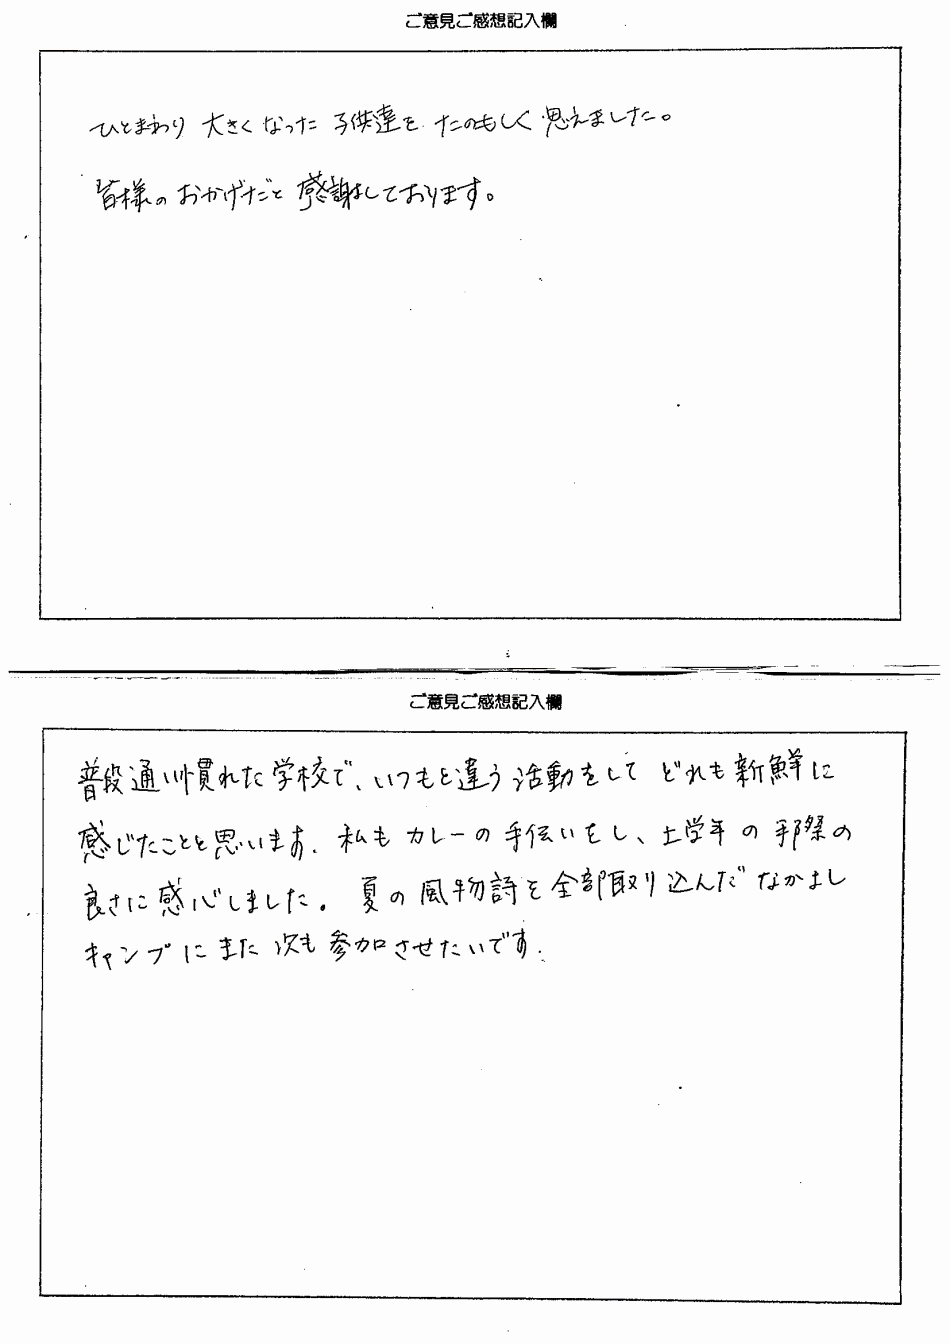 ご意見ご感想記入欄
ひとまわり 大きくなった 子供達を たのもしく 思えました。
皆様の おかげだと 感謝しております。
ご意見ご感想記入欄
普段通い慣れた学校で、いつもと違う活動をして どれも新鮮に
感じたことと思います. 私も カレーの 手伝いをし、上学年の 手際の
良さに 感心しました。 夏の 風物詩を 全部取り込んだ なかよし
キャンプに また 次も 参加させたいです.